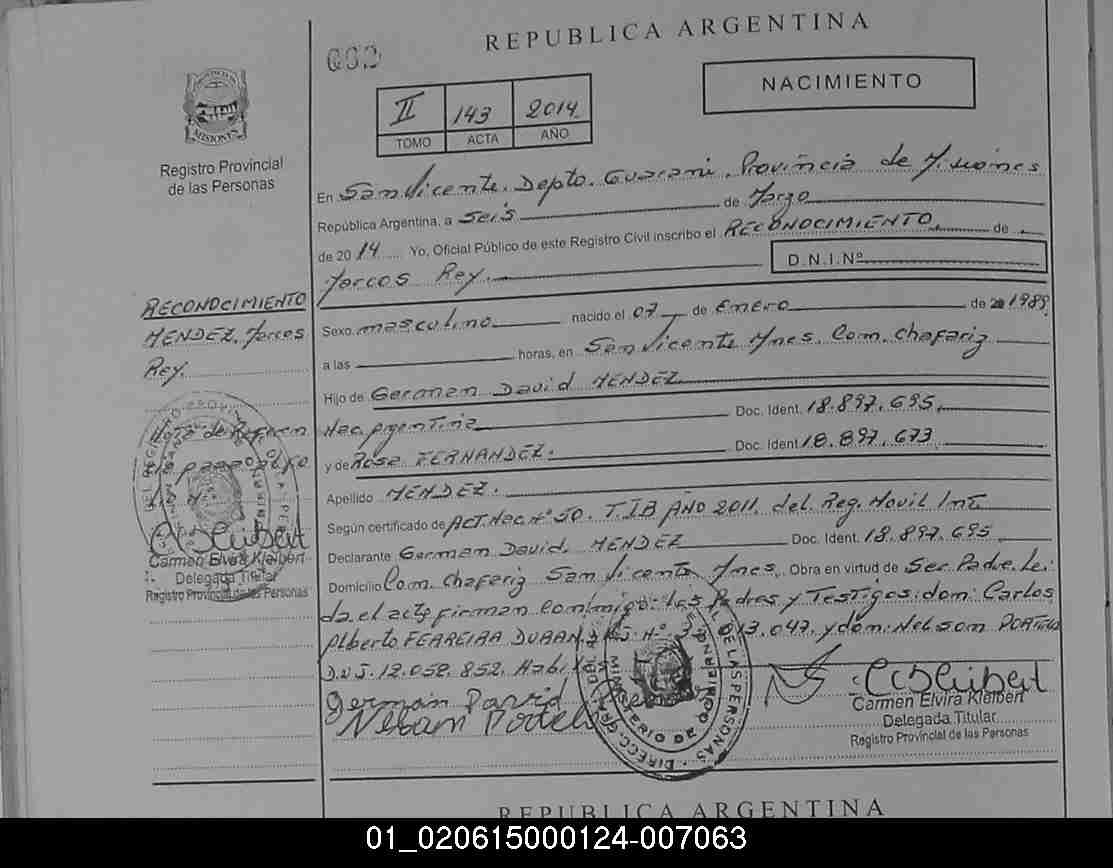 REPUBLICA ARGENTINA
NACIMIENTO
II 143 2014
TOMO ACTA AÑO
PROVINCIA DE MISIONES
Registro Provincial
de las Personas
En San Vicente. Depto. Guarani. Provincia de Misiones
República Argentina, a Seis de Marzo
de 2014 Yo, Oficial Público de este Registro Civil inscribo el RECONOCIMIENTO de
Marcos Rey. D.N.I.Nº
Sexo masculino nacido el 07 de Enero de 1989
a las horas, en San Vicente Mnes. Com. Chafariz
Hijo de German David MENDEZ
Nac. Argentina Doc. Ident. 18.897.695.
y de Rosa FERNANDEZ. Doc. Ident. 18.897.673
Apellido MENDEZ.
Según certificado de ACT. Nac. Nº 50. T. IB AÑO 2011. del. Reg. Movil Int
Declarante German David. MENDEZ Doc. Ident. 18.897.695
Domicilio Com. Chafariz San Vicente Mnes. Obra en virtud de Ser Padre. Lei-
da el acta firman conmigo: los Padres y Testigos: don: Carlos
Alberto FERREIRA DURAN 013.047. y don: Nelson
D.N.I. 12.052.852. Habiles
German David
Nelson
Carmen Elvira Kleibert
Delegada Titular
Registro Provincial de las Personas
DIRECC. GRAL. DEL REG. PROV. DE LAS PERSONAS
MINISTERIO DE GOBIERNO
RECONOCIMIENTO
MENDEZ, Marcos
Rey.
Nota de Referen
Carmen Elvira Kleibert
Delegada Titular
Registro Provincial de las Personas
REPUBLICA ARGENTINA
01_020615000124-007063